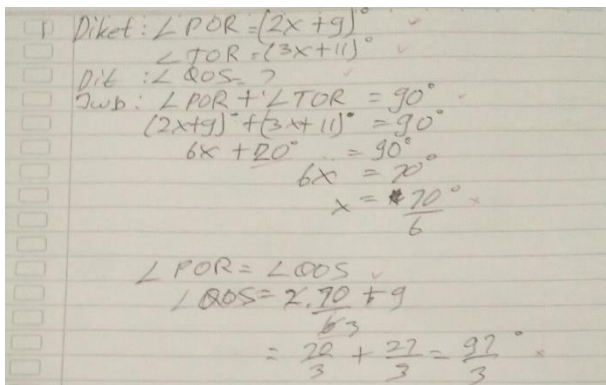 1 Diket : ∠POR = (2x+9)°
∠TOR = (3x+11)°
Dit : ∠QOS = ?
Jwb : ∠POR + ∠TOR = 90°
(2x+9)° + (3x+11)° = 90°
6x + 20° = 90°
6x = 70°
x = 70°/6
∠POR = ∠QOS
∠QOS = 2. 70/6 3 + 9
= 70/3 + 27/3 = 97°/3